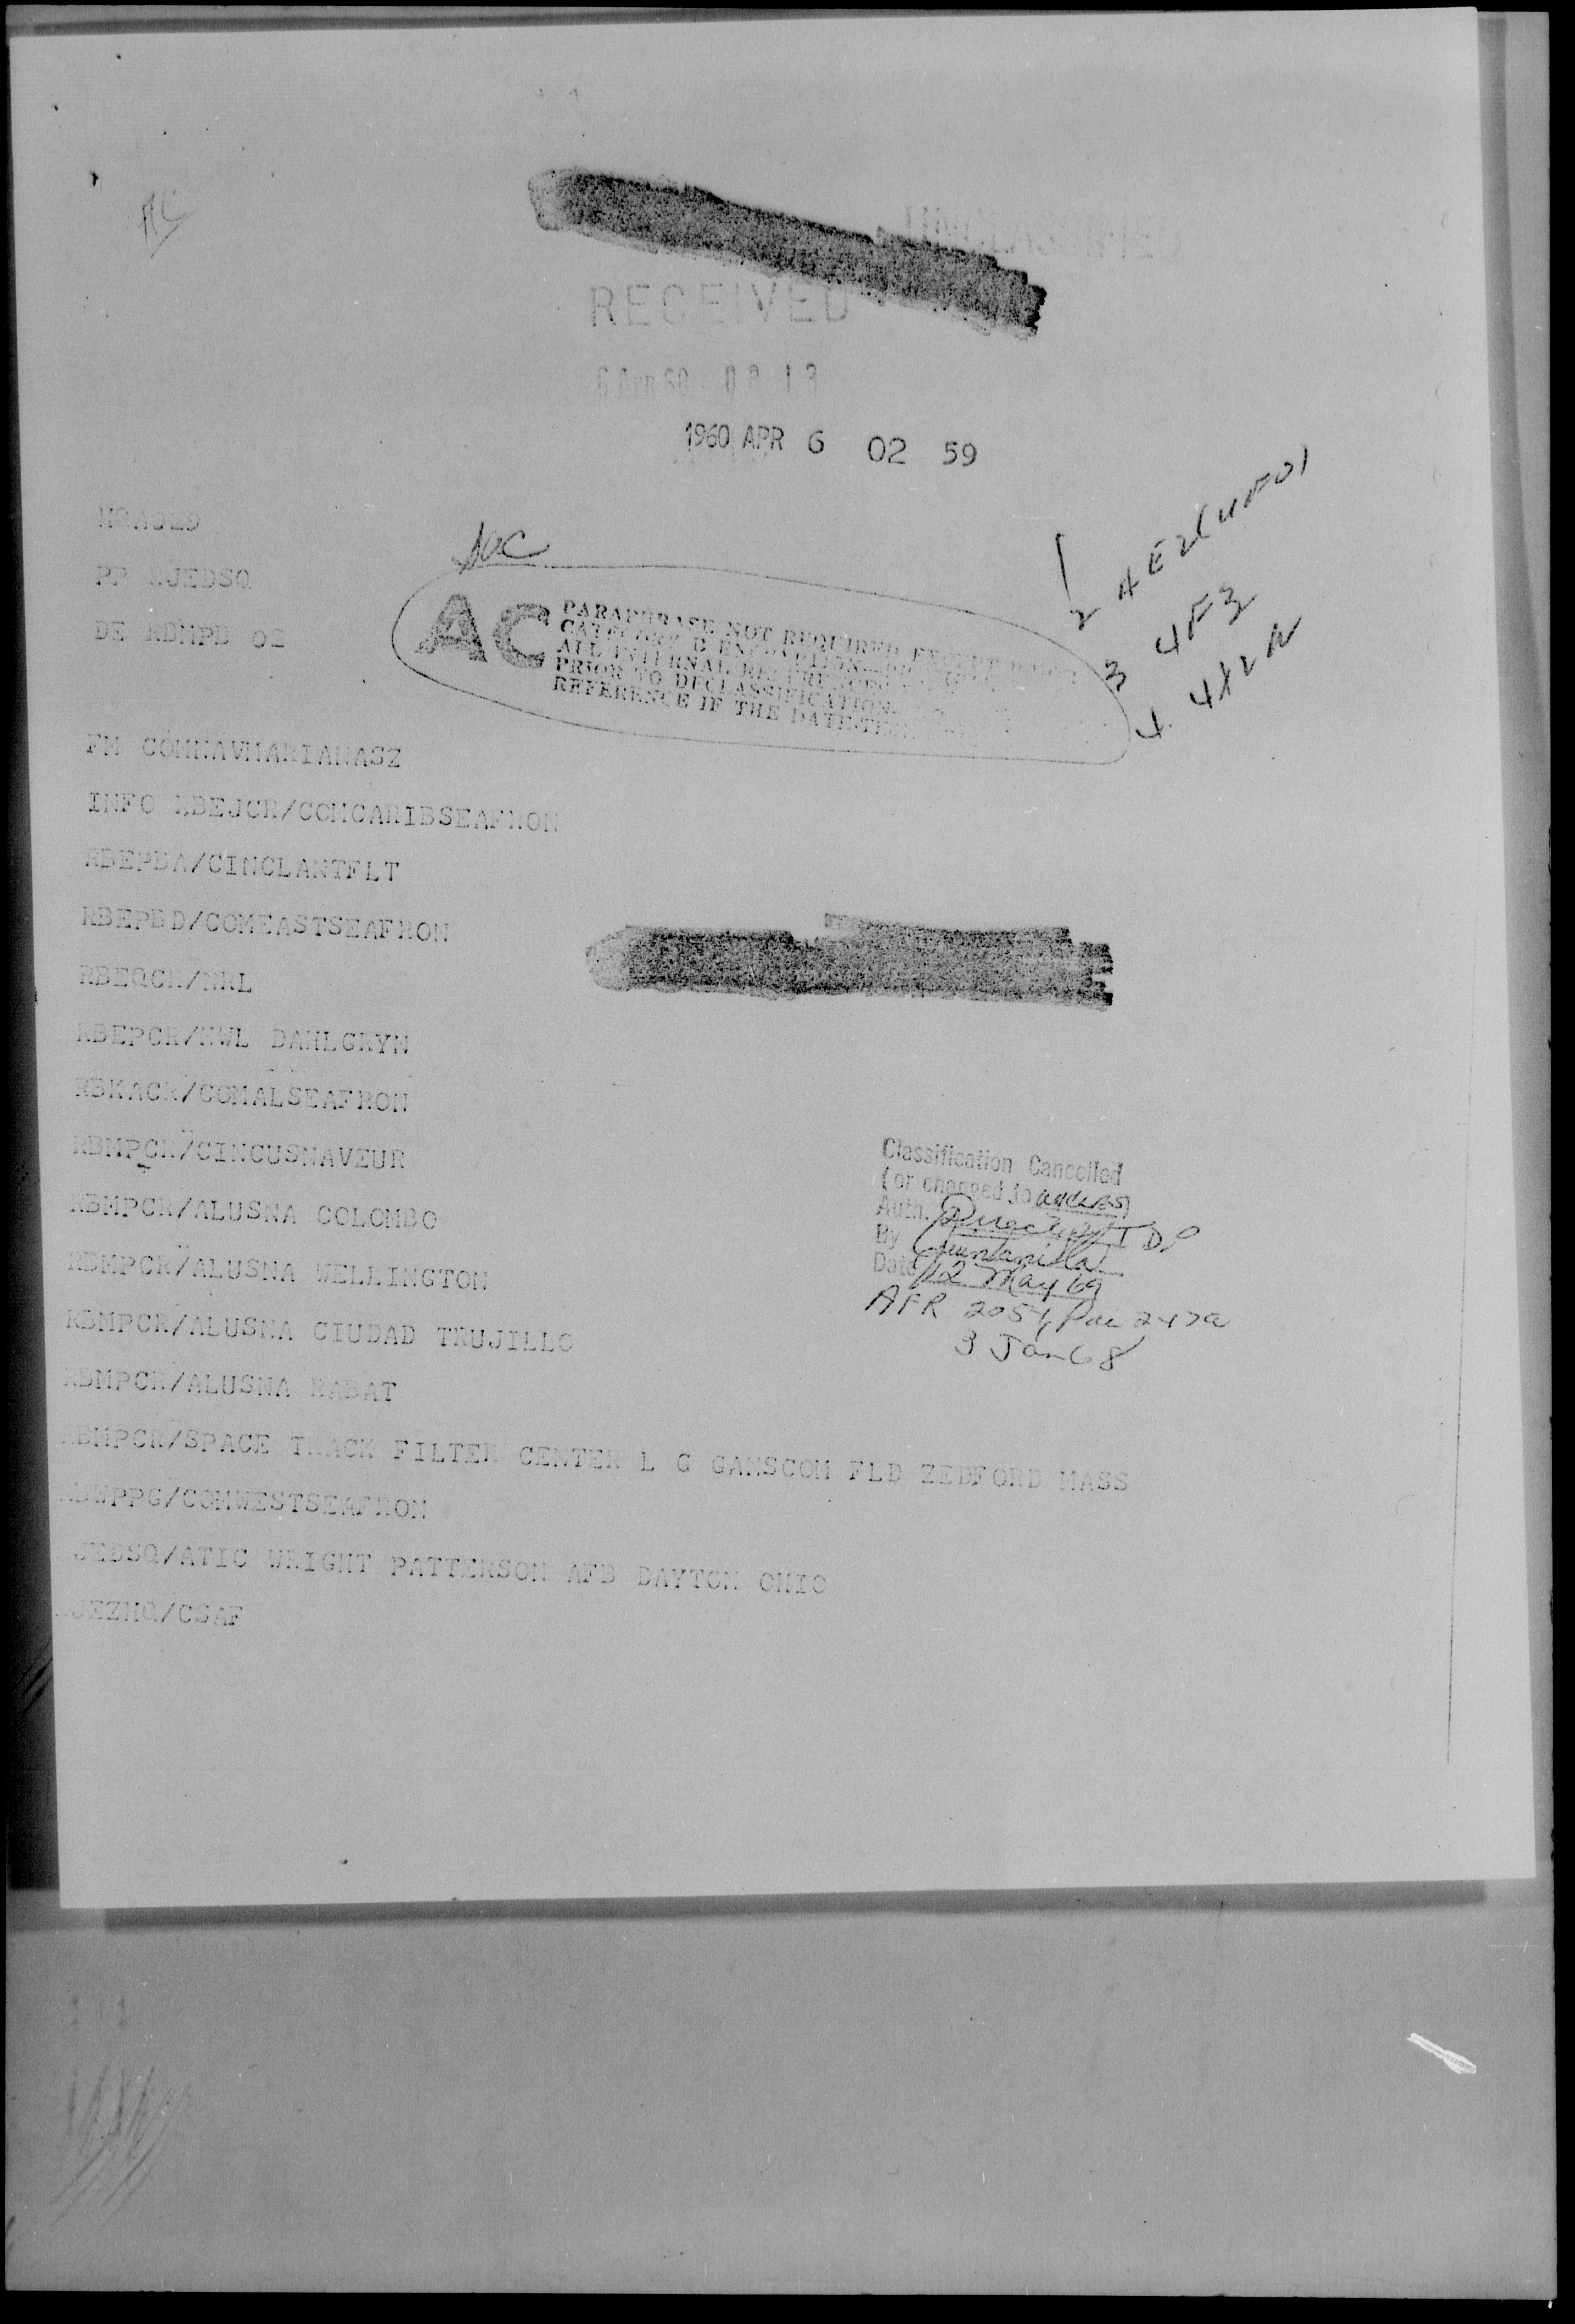 AC
UNCLASSIFIED
RECEIVED
6 Apr 60 08 13
1960 APR 6 02 59
PP RJEDSQ
DE RBMPB 02
AC
PARAPHRASE NOT REQUIRED EXCEPT
CATEGORY B ENCRYPTION
ALL INTERNAL REFERENCES
PRIOR TO DECLASSIFICATION
REFERENCE IF THE DATE-TIME
1
2 4E2(UFO)
3 4F3
4 4X2A
FM COMNAVMARIANASZ
INFO RBEJCR/COMCARIBSEAFRON
RBEPBA/CINCLANTFLT
RBEPBD/COMEASTSEAFRON
RBEQCR/NRL
RBEPCR/NWL DAHLGRYN
RBKACR/COMALSEAFRON
RBMPCR/CINCUSNAVEUR
RBMPCR/ALUSNA COLOMBO
RBMPCR/ALUSNA WELLINGTON
RBMPCR/ALUSNA CIUDAD TRUJILLO
RBMPCR/ALUSNA RABAT
RBMPCR/SPACE TRACK FILTER CENTER L G GANSCOM FLD ZEDFORD MASS
RBWPPG/COMWESTSEAFRON
JEDSQ/ATIC WRIGHT PATTERSON AFB DAYTON OHIO
JEZHQ/CSAF
Classification Cancelled
(or changed to
Auth. Director TDP
By Quintanilla
Date 12 May 69
AFR 205-1, Par 2-27a
3 Jan 68